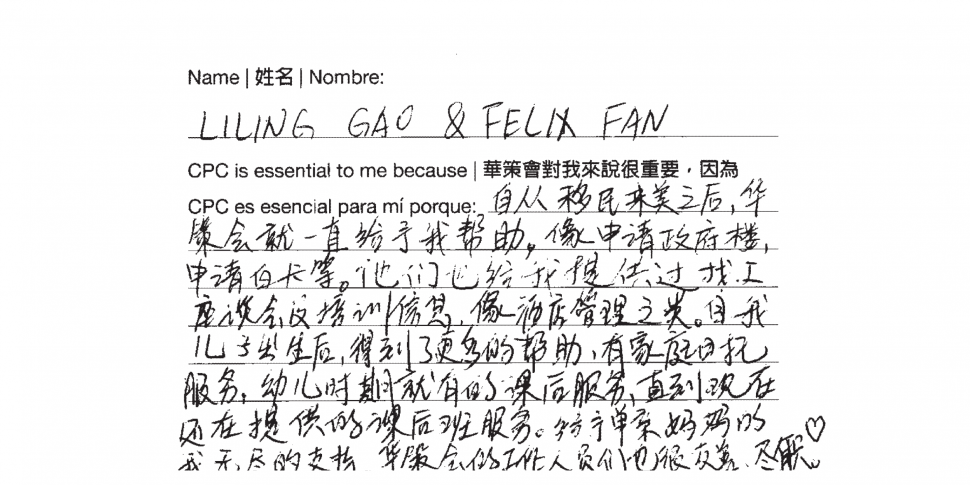 Name | 姓名 | Nombre:
LILING GAO & FELIX FAN
CPC is essential to me because | 華策會對我來說很重要，因為
CPC es esencial para mí porque: 自从移民来美之后，华
策会就一直给予我帮助。像申请政府楼，
申请白卡等。他们也给我提供过找工
座谈会及培训信息，像酒店管理之类。自我
儿子出生后，得到了更多的帮助，有家庭日托
服务，幼儿时期就有的课后服务，直到现在
还在提供的课后班服务。给予单亲妈妈的
我无尽的支持，华策会的工作人员们也很友善、尽职。♡